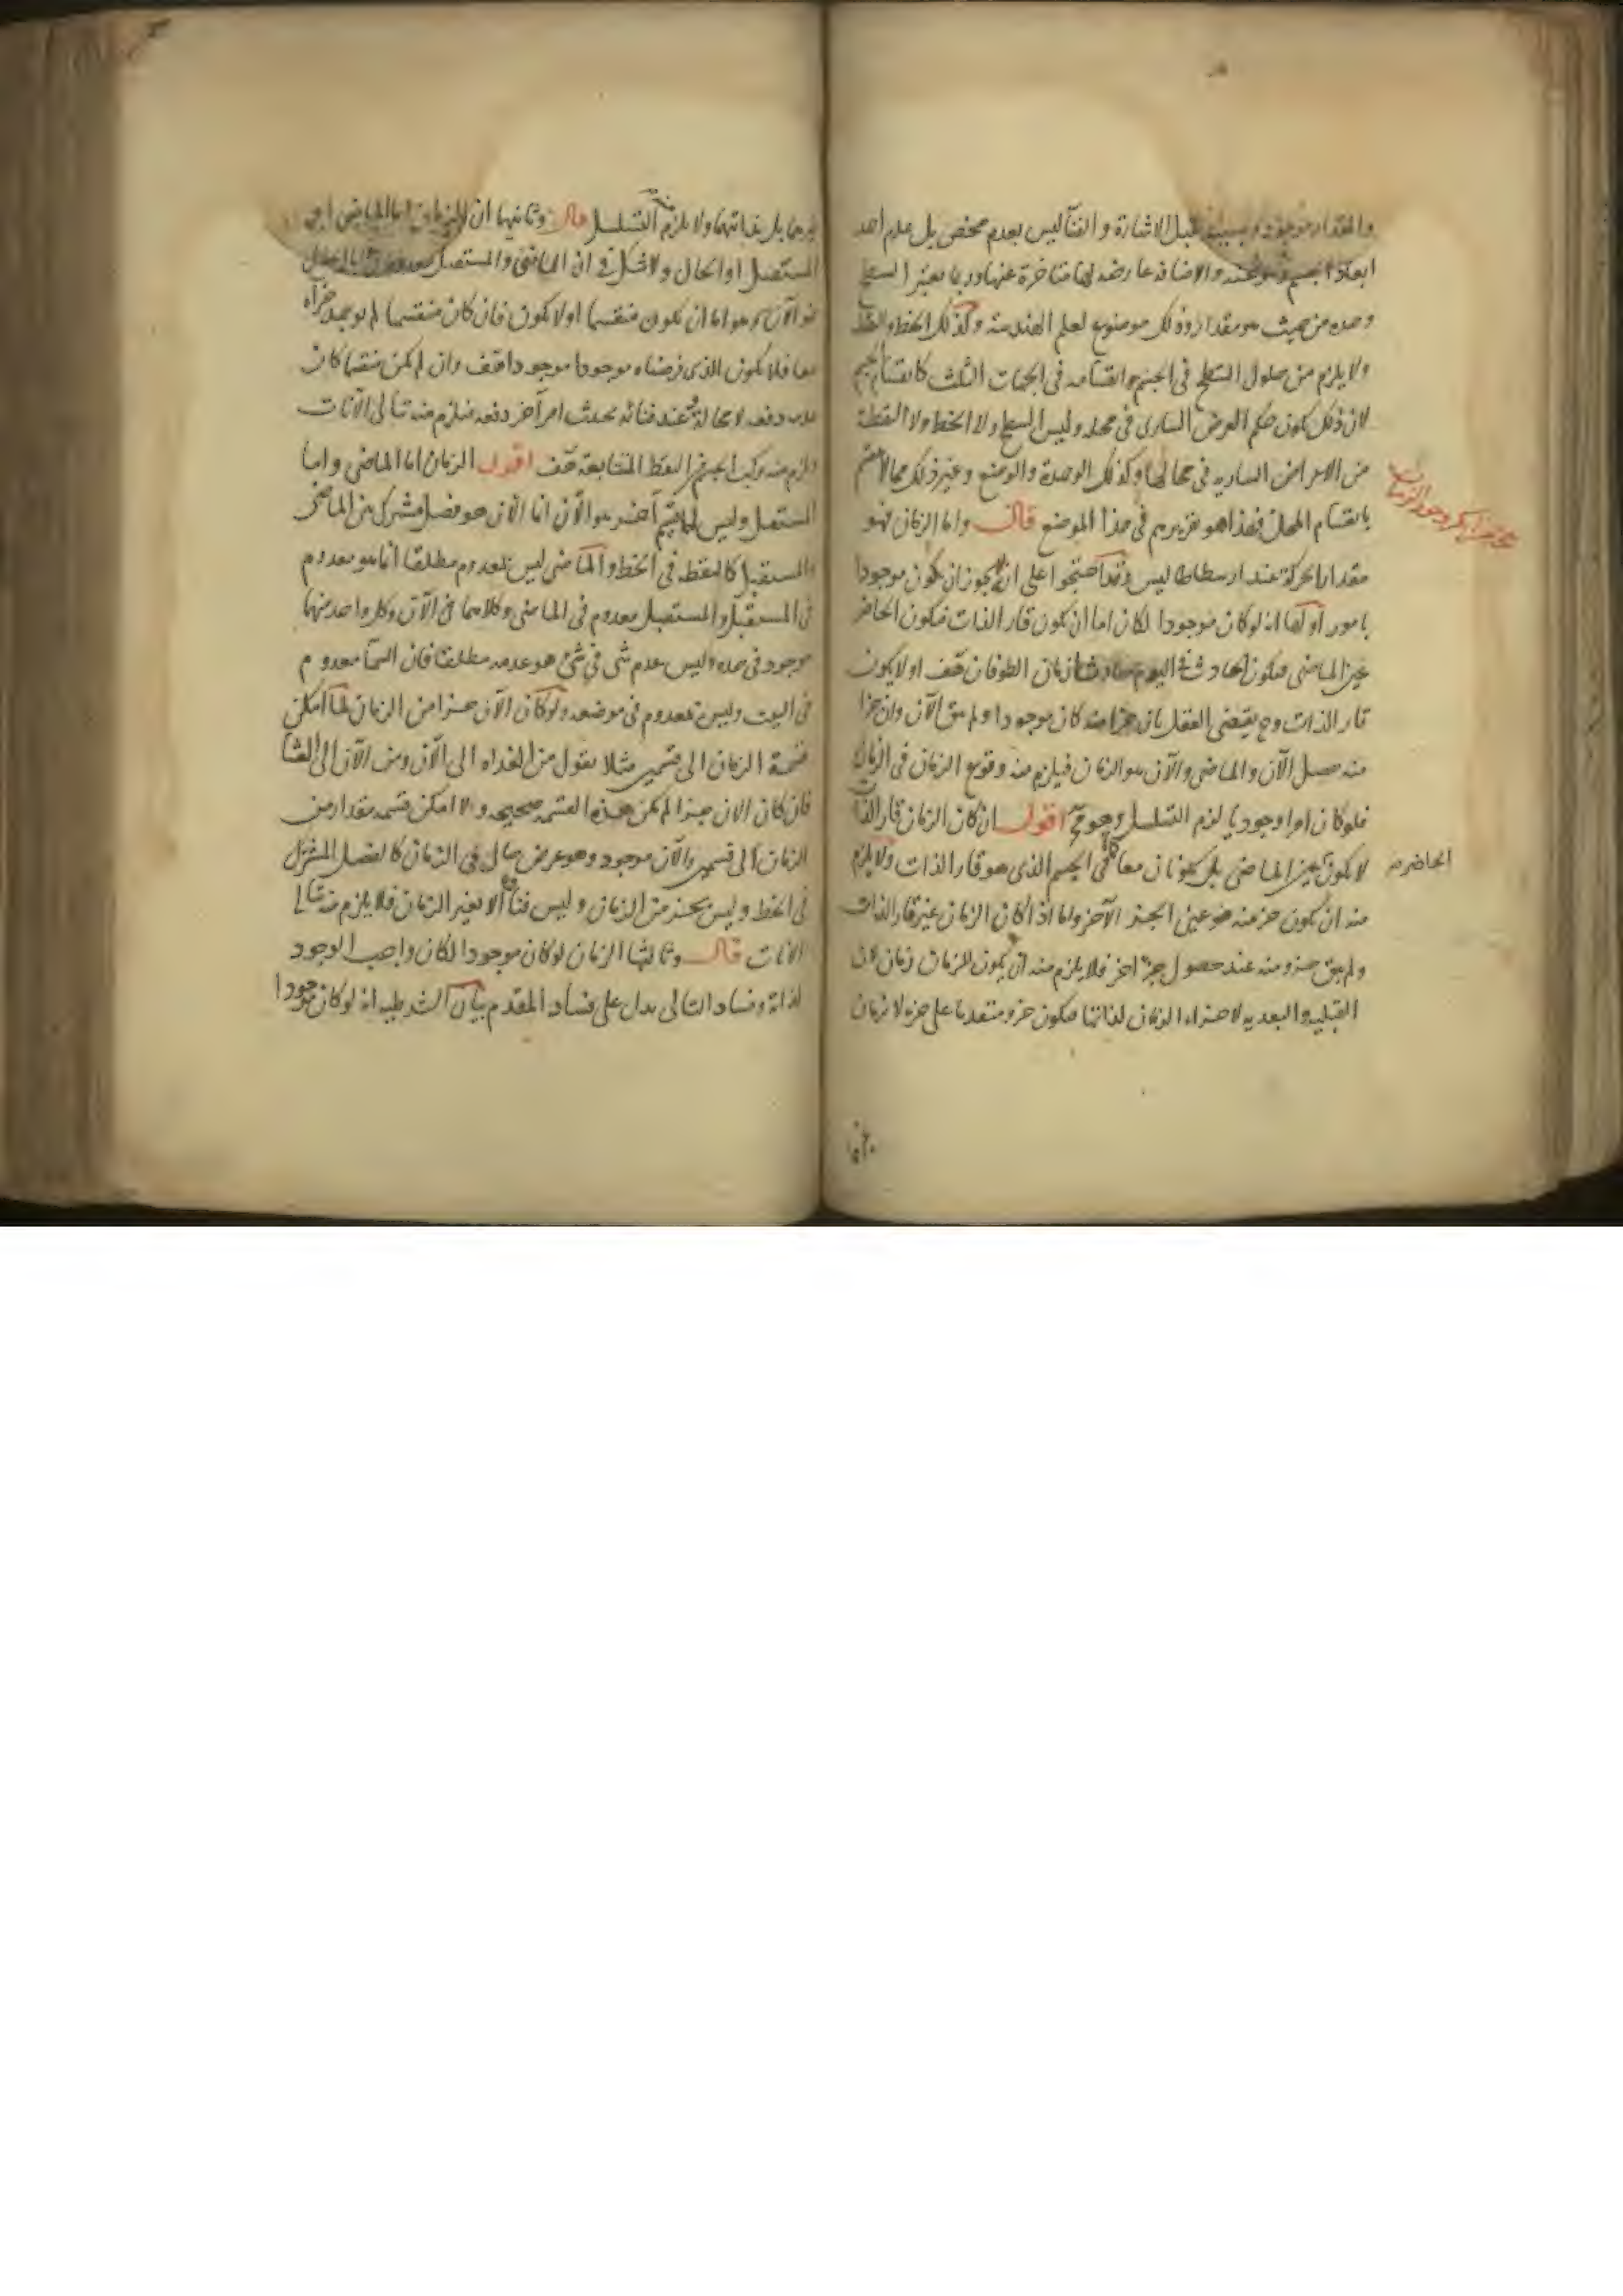 والمقدار موجود قبل الاشارة والفنآ ليس بعدم محض بل عدم احد
ابعاد الجسم والاضافة عارضة لها متاخرة عنها وربما يعتبر السطح
وحده من حيث هو مقدار وذلك موضوع لعلم الهندسة وكذلك الخط والنقطة
ولا يلزم من حلول السطح في الجسم انقسامه في الجهات الثلث كانقسام الجسم
لان ذلك يكون حكم العرض الساري في محله وليس السطح ولا الخط ولا النقطة
من الاعراض السارية في محالها وكذلك الوحدة والوضع وغير ذلك مما لا ينقسم
بانقسام المحل فهذا هو تقريرهم في هذا الموضع قال واما الزمان فهو
مقدار الحركة عند ارسطاطاليس وقد احتجوا على انه يجوز ان يكون موجودا
بامور اولها انه لو كان موجودا لكان اما ان يكون قار الذات فيكون الحاضر
عين الماضي فيكون الحادث في اليوم حادثا زمان الطوفان هف او لا يكون
قار الذات وح يقتضي العقل بان جزا منه كان موجودا ولم يبق الآن وان جزا
منه حصل الآن والماضي والآن هو الزمان فيلزم منه وقوع الزمان في الزمان
فلو كان امرا وجوديا لزم التسلسل وهو مح اقول ان كان الزمان قار الذات
لا يكون عين الماضي بل يكونان معا كما في الجسم الذي هو قار الذات ولا يلزم
الحاضر
منه ان يكون جز منه هو عين الجزء الآخر واما اذا كان الزمان غير قار الذات
ولم يبق جزو منه عند حصول جزء اخر فلا يلزم منه ان يكون للزمان زمان لان
القبلية والبعدية لاجزاء الزمان لذاتها فيكون جزو متقدما على جزء لا بزمان
غيرهما بل بذاتهما ولا يلزم التسلسل قال وثانيها ان الزمان اما الماضي او
المستقبل او الحال ولا شك في ان الماضي والمستقبل معدومان
هو الآن وهو اما ان يكون منقسما او لا يكون فان كان منقسما لم يوجد جزآه
معا فلا يكون الذي فرضناه موجودا موجودا هف وان لم يكن منقسما كان
عدمه دفعة لا محالة وعند فنائه يحدث امر آخر دفعة فيلزم منه تتالي الآنات
ويلزم منه تركب الجسم من النقط المتتابعة هف اقول الزمان اما الماضي واما
المستقبل وليس له قسم آخر هو الآن انما الآن هو فصل مشترك بين الماضي
والمستقبل كالنقطة في الخط والماضي ليس بمعدوم مطلقا انما هو معدوم
في المستقبل والمستقبل معدوم في الماضي وكلاهما في الآن وكل واحد منهما
موجود في حده وليس عدم شي في شي هو عدمه مطلقا فان السمآ معدوم
في البيت وليس بمعدوم في موضعه ولو كان الآن جزا من الزمان لما امكن
قسمة الزمان الى قسمين مثلا نقول من الغداة الى الآن ومن الآن الى العشا
فان كان الان جزا لم يكن هذه القسمة صحيحة والا امكن قسمة مقدار من
الزمان الى قسمين والآن موجود وهو عرض حال في الزمان كالفصل المشترك
في الخط وليس بجزء من الزمان وليس فناه الا بغير الزمان فلا يلزم منه تتالي
الآنات قال وثالثها الزمان لو كان موجودا لكان واجب الوجود
لذاته وفساد التالي يدل على فساد المقدم بيان الشرطية انه لو كان موجودا